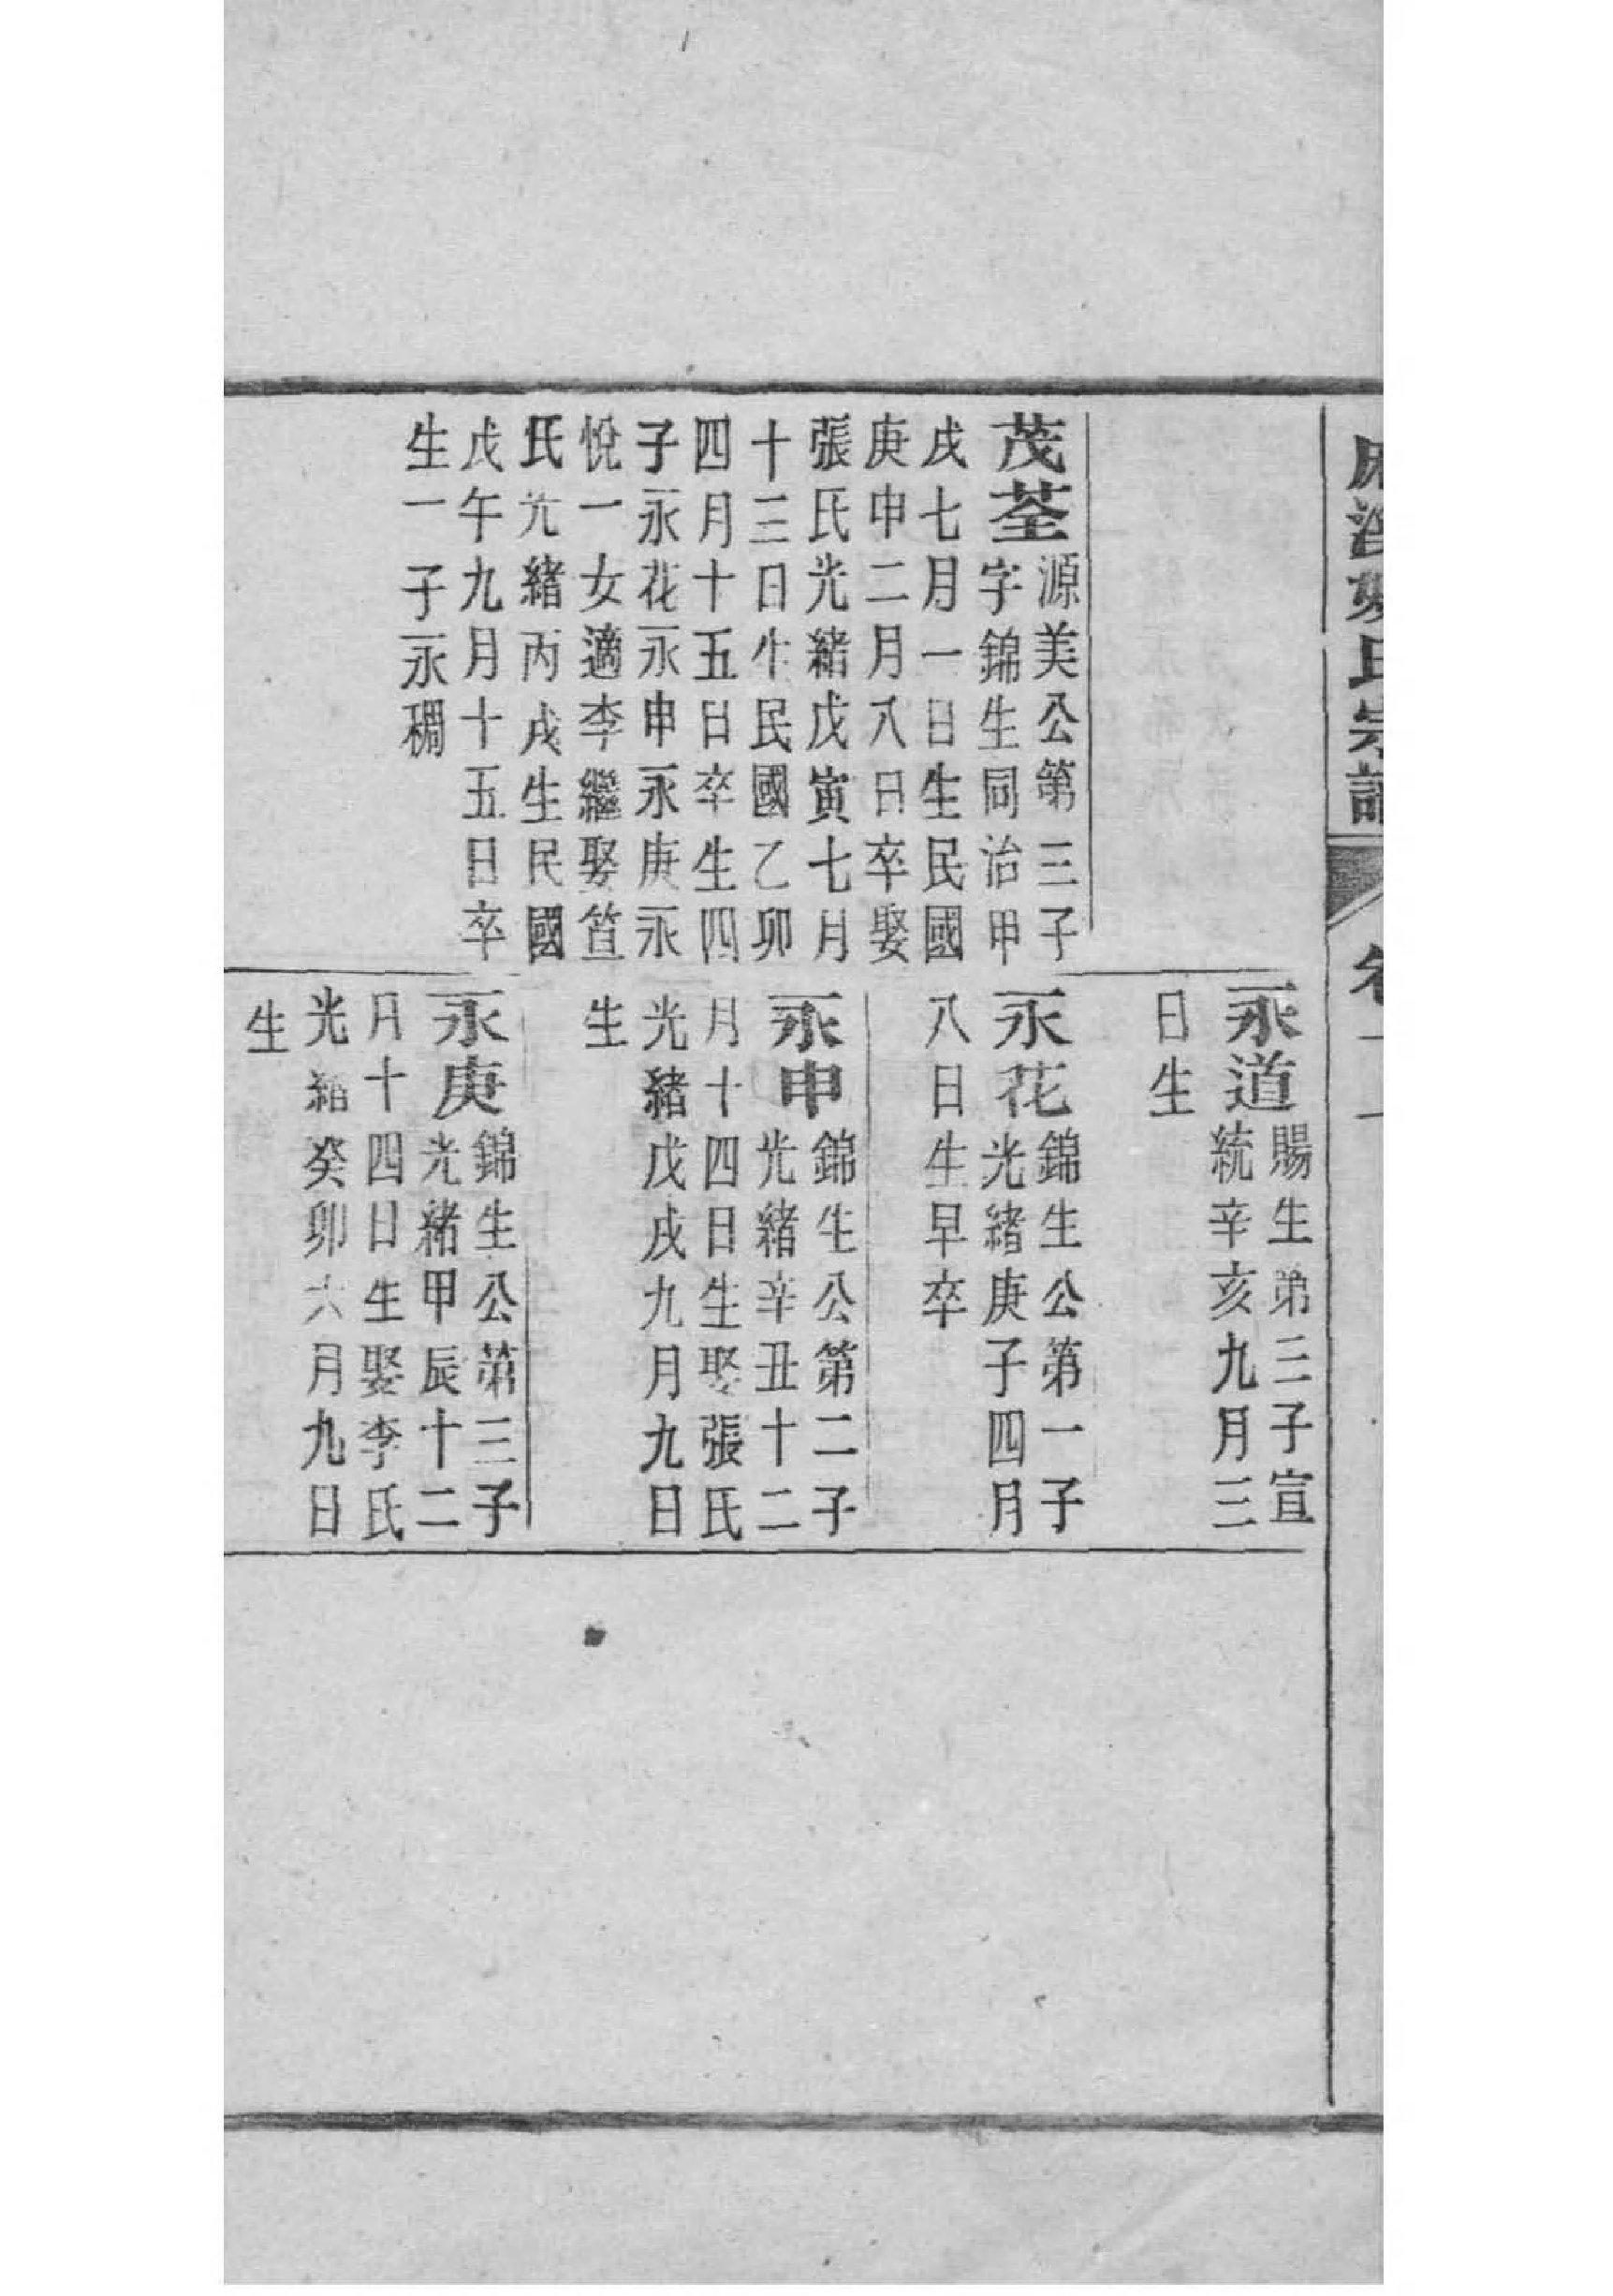 氏宗譜
卷十一
茂荃源美公第三子
字錦生同治甲
戌七月一日生民國
庚申二月八日卒娶
張氏光緒戊寅七月
十三日生民國乙卯
四月十五日卒生四
子永花永申永庚永
悅一女適李繼娶笪
氏光緒丙戌生民國
戊午九月十五日卒
生一子永稠
永道賜生弟三子宣
統辛亥九月三
日生
永花錦生公第一子
光緒庚子四月
八日生早卒
永申錦生公第二子
光緒辛丑十二
月十四日生娶張氏
光緒戊戌九月九日
生
永庚錦生公第三子
光緒甲辰十二
月十四日生娶李氏
光緒癸卯六月九日
生